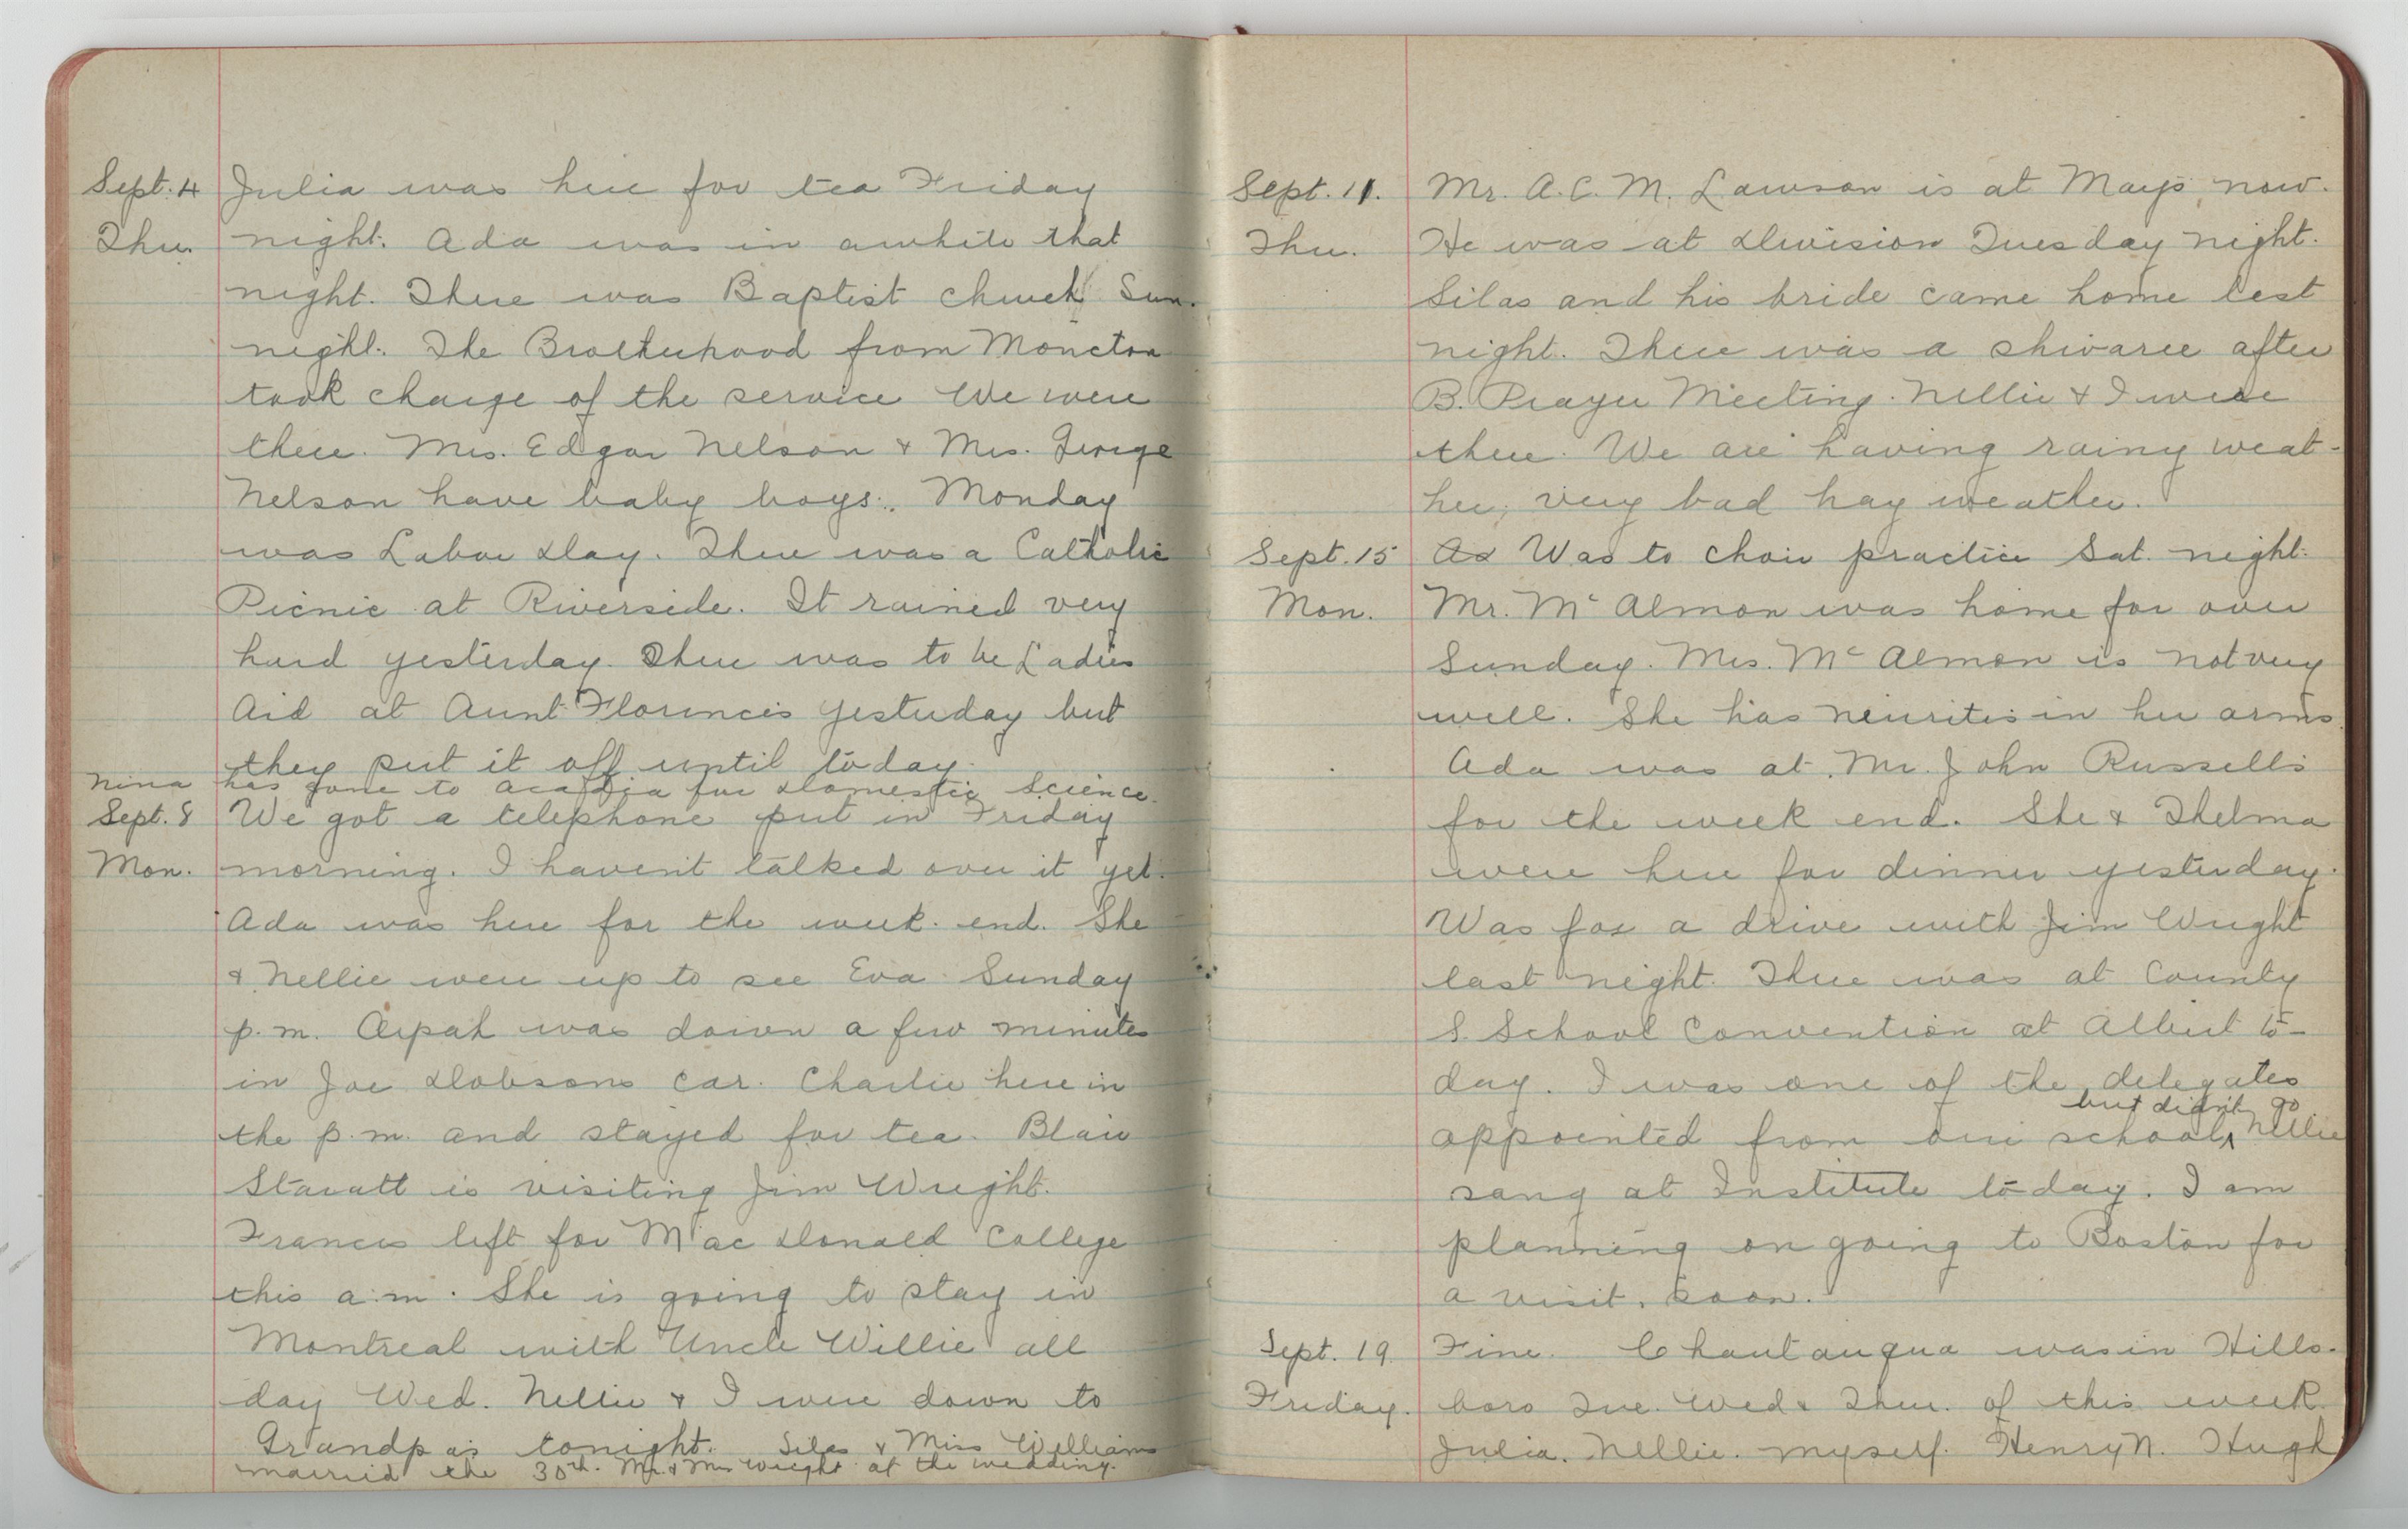 Sept. 4 Julia was here for tea Friday
Thu. night. Ada was in awhile that
night. There was Baptist church Sun.
night. The Brotherhood from Moncton
took charge of the service We were
there. Mrs. Edgar Nelson & Mrs. George
Nelson have baby boys. Monday
was Labor Day. There was a Catholic
Picnic at Riverside. It rained very
hard yesterday. There was to be Ladies
Aid at Aunt Florences yesterday but
they put it off until today.
Nina has gone to Acadia for Domestic Science.
Sept. 8 We got a telephone put in Friday
Mon. morning. I haven't talked over it yet.
Ada was here for the week end. She
& Nellie were up to see Eva Sunday
p.m. Arpah was down a few minutes
in Joe Dobsons car. Charlie here in
the p.m. and stayed for tea. Blair
Stavatt is visiting Jim Wright.
Frances left for MacDonald College
this a.m. She is going to stay in
Montreal with Uncle Willie all
day Wed. Nellie & I were down to
Grandpas tonight. Silas & Miss Williams
married the 30th. Mr. & Mrs Wright at the wedding.
Sept. 11. Mr. A.C.M. Lawson is at Mays now.
Thu. He was at Division Tuesday night.
Silas and his bride came home last
night. There was a shivaree after
B. Prayer Meeting. Nellie & I were
there. We are having rainy weat-
her, very bad hay weather.
Sept. 15 Ad Was to choir practice Sat. night.
Mon. Mr. McAlmon was home for over
Sunday. Mrs. McAlmon is not very
well. She has neuritis in her arms.
Ada was at Mr. John Russells
for the week end. She & Thelma
were here for dinner yesterday.
Was for a drive with Jim Wright
last night. There was at County
S. School Convention at Albert to-
day. I was one of the delegates
but didn't go
appointed from our school^ Nellie
sang at Institute to-day. I am
planning on going to Boston for
a visit, soon.
Sept. 19. Fine. Chautauqua was in Hills-
Friday. boro Tue. Wed & Thu. of this week.
Julia. Nellie. myself. Henry N. Hugh